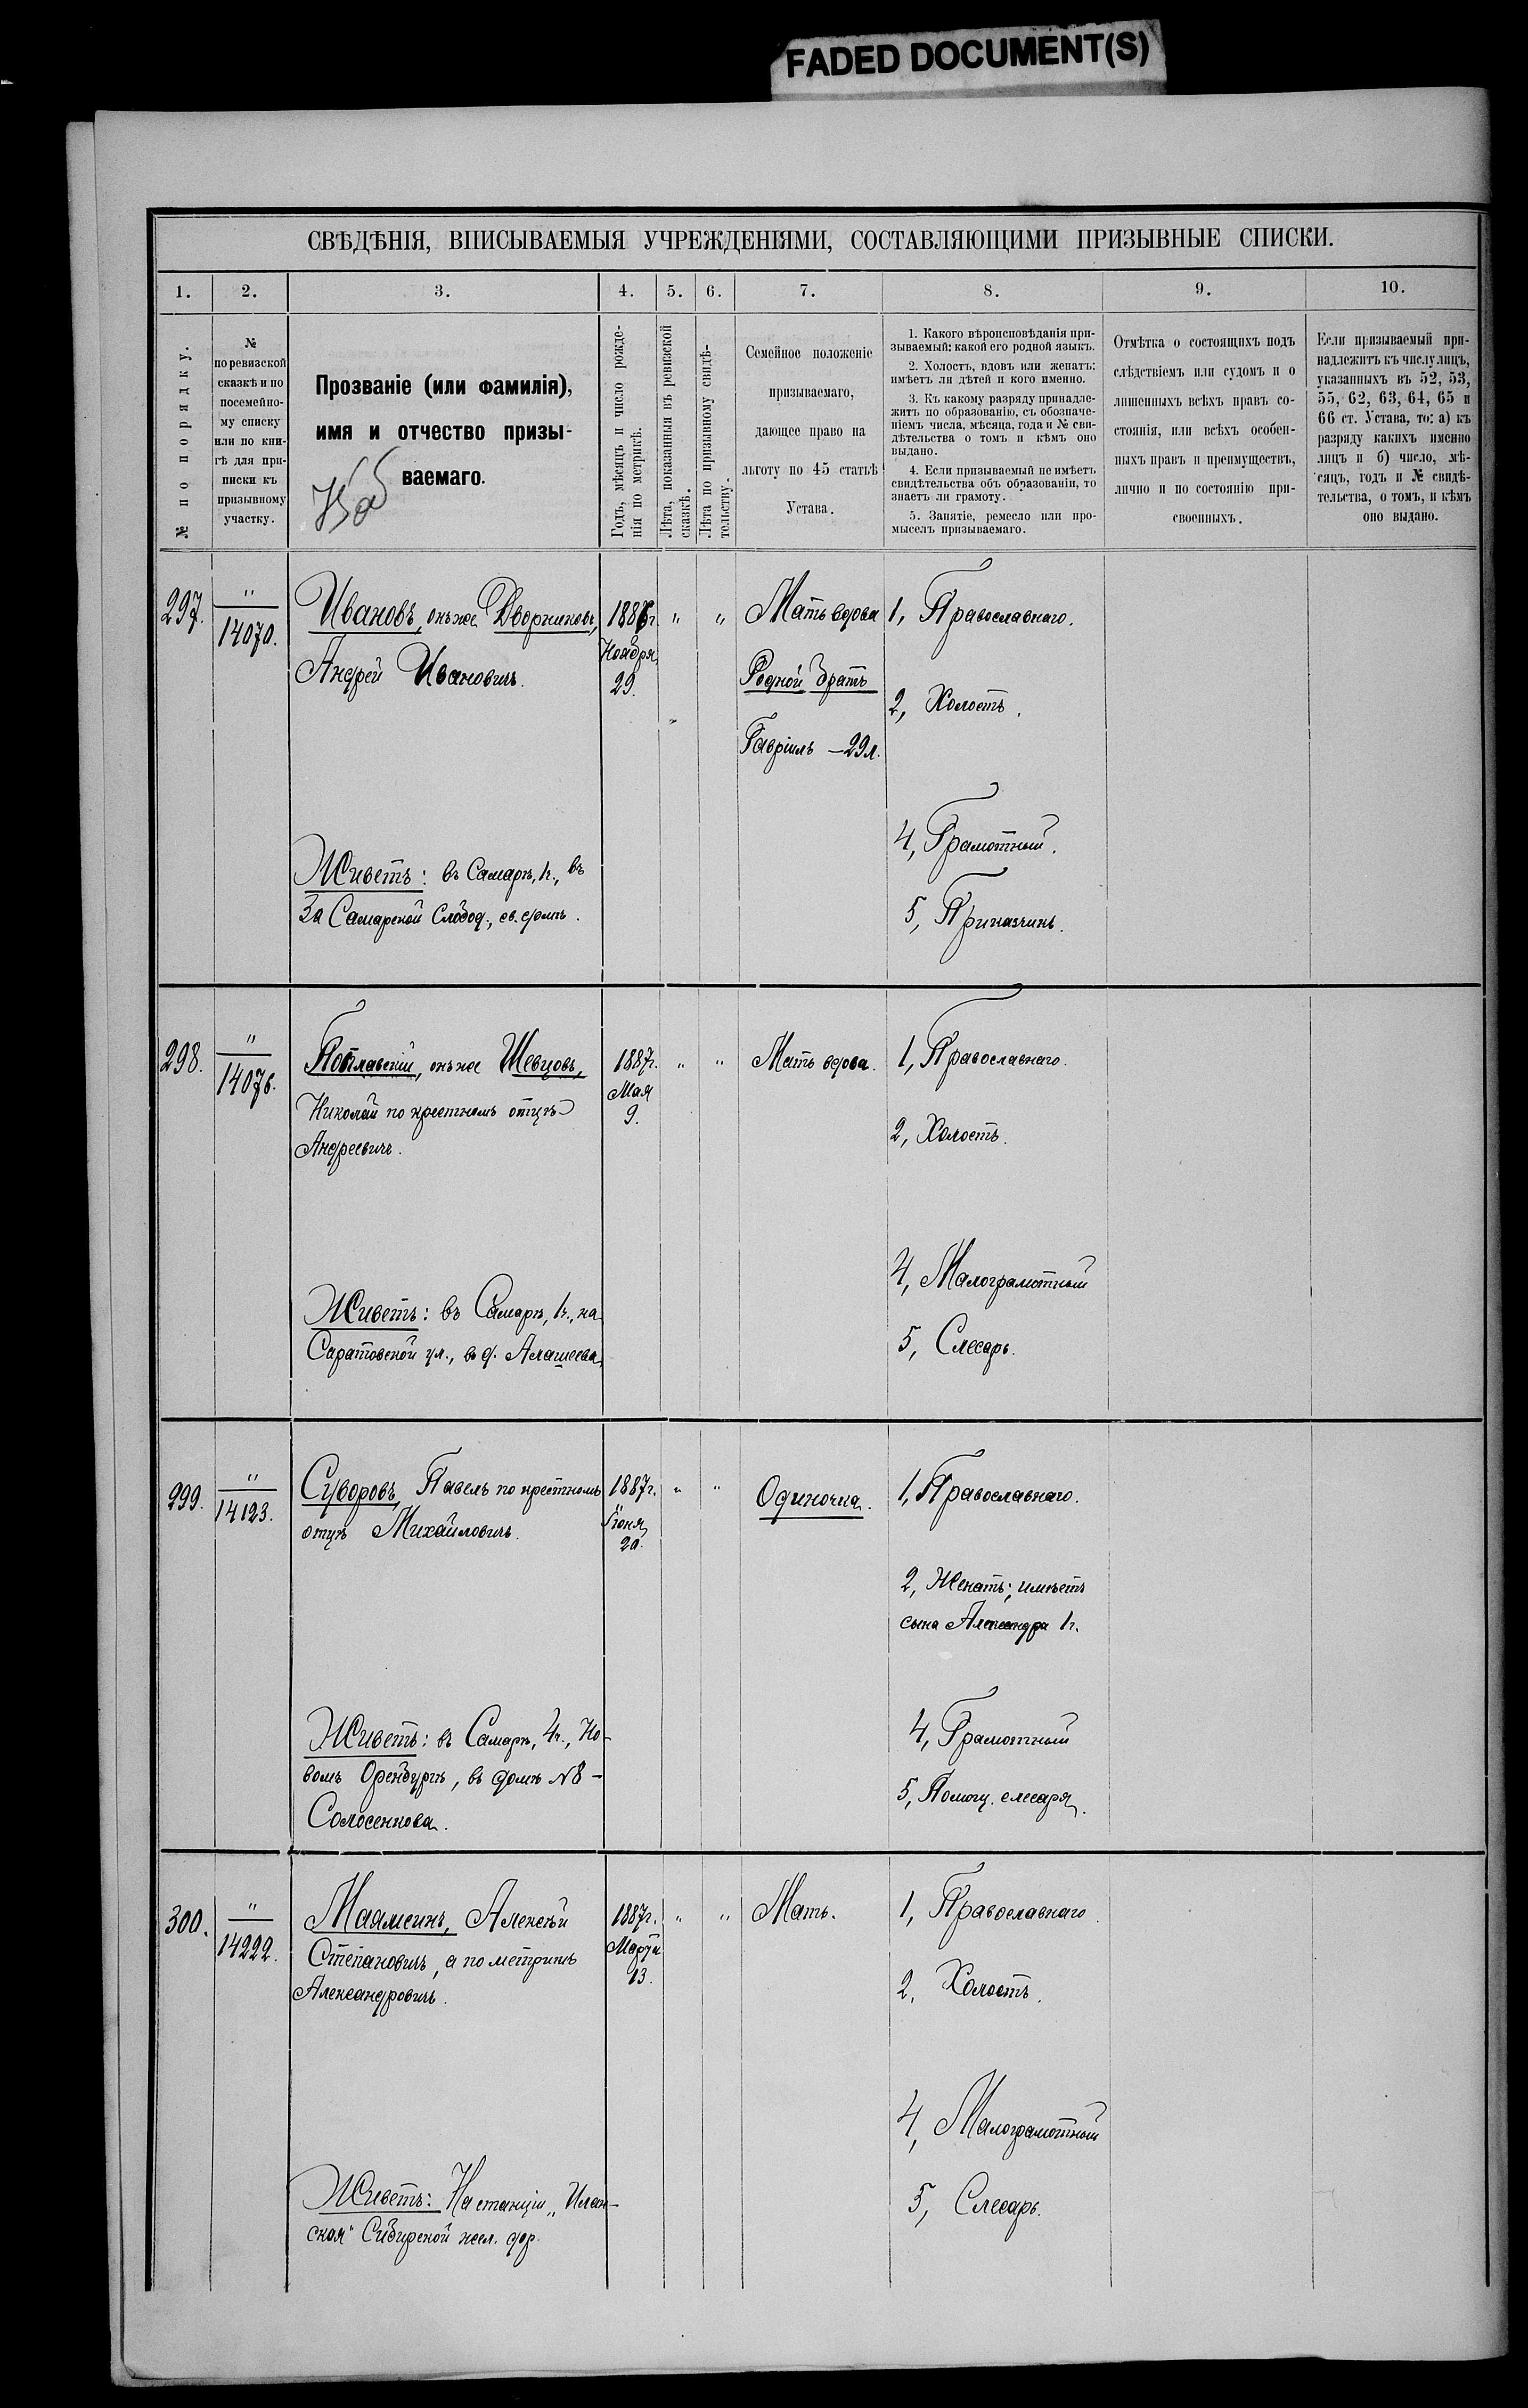 FADED DOCUMENT(S)
СВѢДѢНІЯ, ВПИСЫВАЕМЫЯ УЧРЕЖДЕНІЯМИ, СОСТАВЛЯЮЩИМИ ПРИЗЫВНЫЕ СПИСКИ.
1. 2. 3. 4. 5. 6. 7. 8. 9. 10.
№ по порядку.
№
по ревизской
сказкѣ и по
посемейно-
му списку
или по кни-
гѣ для при-
писки къ
призывному
участку.
Прозваніе (или фамилія),
имя и отчество призы-
ваемаго.
Годъ, мѣсяцъ и число рожде-
нія по метрикѣ.
Лѣта, показанныя въ ревизской
сказкѣ.
Лѣта по призывному свидѣ-
тельству.
Семейное положеніе
призываемаго,
дающее право на
льготу по 45 статьѣ
Устава.
1. Какого вѣроисповѣданія при-
зываемый; какой его родной языкъ.
2. Холостъ, вдовъ или женатъ;
имѣетъ ли дѣтей и кого именно.
3. Къ какому разряду принадле-
житъ по образованію, съ обозначе-
ніемъ числа, мѣсяца, года и № сви-
дѣтельства о томъ и кѣмъ оно
выдано.
4. Если призываемый не имѣетъ
свидѣтельства объ образованіи, то
знаетъ ли грамоту.
5. Занятіе, ремесло или про-
мыселъ призываемаго.
Отмѣтка о состоящихъ подъ
слѣдствіемъ или судомъ и о
лишенныхъ всѣхъ правъ со-
стоянія, или всѣхъ особен-
ныхъ правъ и преимуществъ,
лично и по состоянію при-
своенныхъ.
Если призываемый при-
надлежитъ къ числу лицъ,
указанныхъ въ 52, 53,
55, 62, 63, 64, 65 и
66 ст. Устава, то: а) къ
разряду какихъ именно
лицъ и б) число, мѣ-
сяцъ, годъ и № свидѣ-
тельства, о томъ, и кѣмъ
оно выдано.
297.
"
14070.
Ивановъ, онъ же Дворниковъ,
Андрей Ивановичъ.
Живетъ: въ Самарѣ, 1ч., въ
За Самарской Слобод., св. домѣ.
1886г.
Ноября
29.
" "
Мать вдова
Родной братъ
Гавріилъ – 29 л.
1, Православнаго.
2, Холостъ.
4, Грамотный.
5, Приказчикъ.
298.
"
14076.
Поплавскій, онъ же Шевцовъ,
Николай по крестномъ отцѣ
Андреевичъ.
Живетъ: въ Самарѣ, 1ч., на
Саратовской ул., въ д. Алашеева.
1887г.
Мая
9.
" "
Мать вдова.
1, Православнаго.
2, Холостъ.
4, Малограмотный
5, Слесарь.
299.
"
14123.
Суворовъ, Павелъ по крестномъ
отцѣ Михайловичъ.
Живетъ: въ Самарѣ, 4ч., Но-
вомъ Оренбургѣ, въ домѣ № 8 –
Солосенкова.
1887г.
Іюня
20.
" "
Одиночка.
1, Православнаго.
2, Женатъ; имѣетъ
сына Александра 1г.
4, Грамотный
5, Помощ. слесаря.
300.
"
14222.
Маямсинъ, Алексѣй
Степановичъ, а по метрикѣ
Александровичъ.
Живетъ: На станціи „Илан-
ская" Сибирской жел. дор.
1887г.
Марта
13.
" "
Мать.
1, Православнаго.
2, Холостъ.
4, Малограмотный
5, Слесарь.